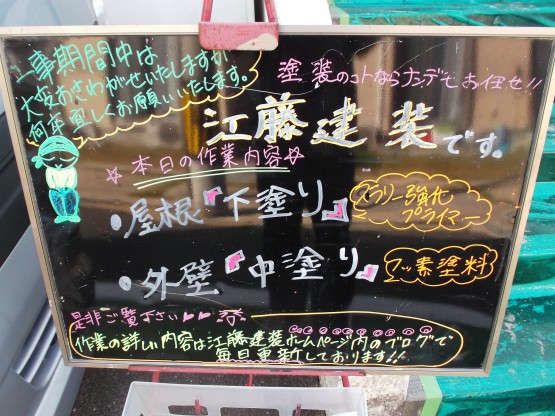 工事期間中は
大変おさわがせいたしますが
何卒宜しくお願いいたします。
塗装のコトならナンデもお任せ!!
江藤建装です。
☆本日の作業内容☆
・屋根『下塗り』
スラリー強化
プライマー
・外壁『中塗り』
フッ素塗料
是非ご覧下さい
作業の詳しい内容は江藤建装ホームページ内のブログで
毎日更新しております!!